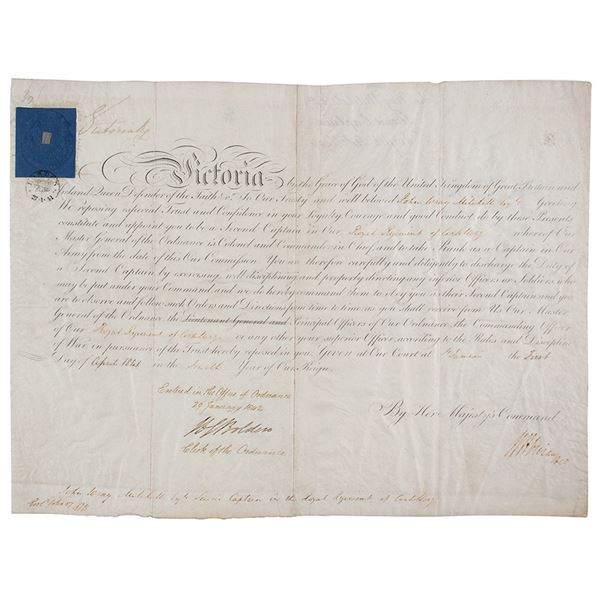 Victoria
Victoria by the Grace of God of the United Kingdom of Great Britain and
Ireland Queen Defender of the Faith &c To Our Trusty and well beloved John Wray Mitchell Esqr Greeting
We reposing especial Trust and Confidence in your Loyalty Courage and good Conduct do by these Presents
constitute and appoint you to be a Second Captain in Our Royal Regiment of Artillery whereof Our
Master General of the Ordnance is Colonel and Commander in Chief, and to take Rank as a Captain in Our
Army from the date of this Our Commission. You are therefore carefully and diligently to discharge the Duty of
a Second Captain by exercising and well disciplining and properly directing any inferior Officers or Soldiers who
may be put under your Command and we do hereby command them to obey you as their Second Captain and you
are to observe and follow such Orders and Directions from time to time as you shall receive from Us Our Master
General of the Ordnance the Lieutenant General and Principal Officers of Our Ordnance, the Commanding Officer
of Our Royal Regiment of Artillery or any other your superior Officer according to the Rules and Discipline
of War, in pursuance of the Trust hereby reposed in you. Given at Our Court at St James's the First
Day of April 1841 in the Fourth Year of Our Reign.
Entered in the Office of Ordnance
29 January 1842
Clerk of the Ordnance
By Her Majesty's Command
John Wray Mitchell Esqr Second Captain in the Royal Regiment of Artillery